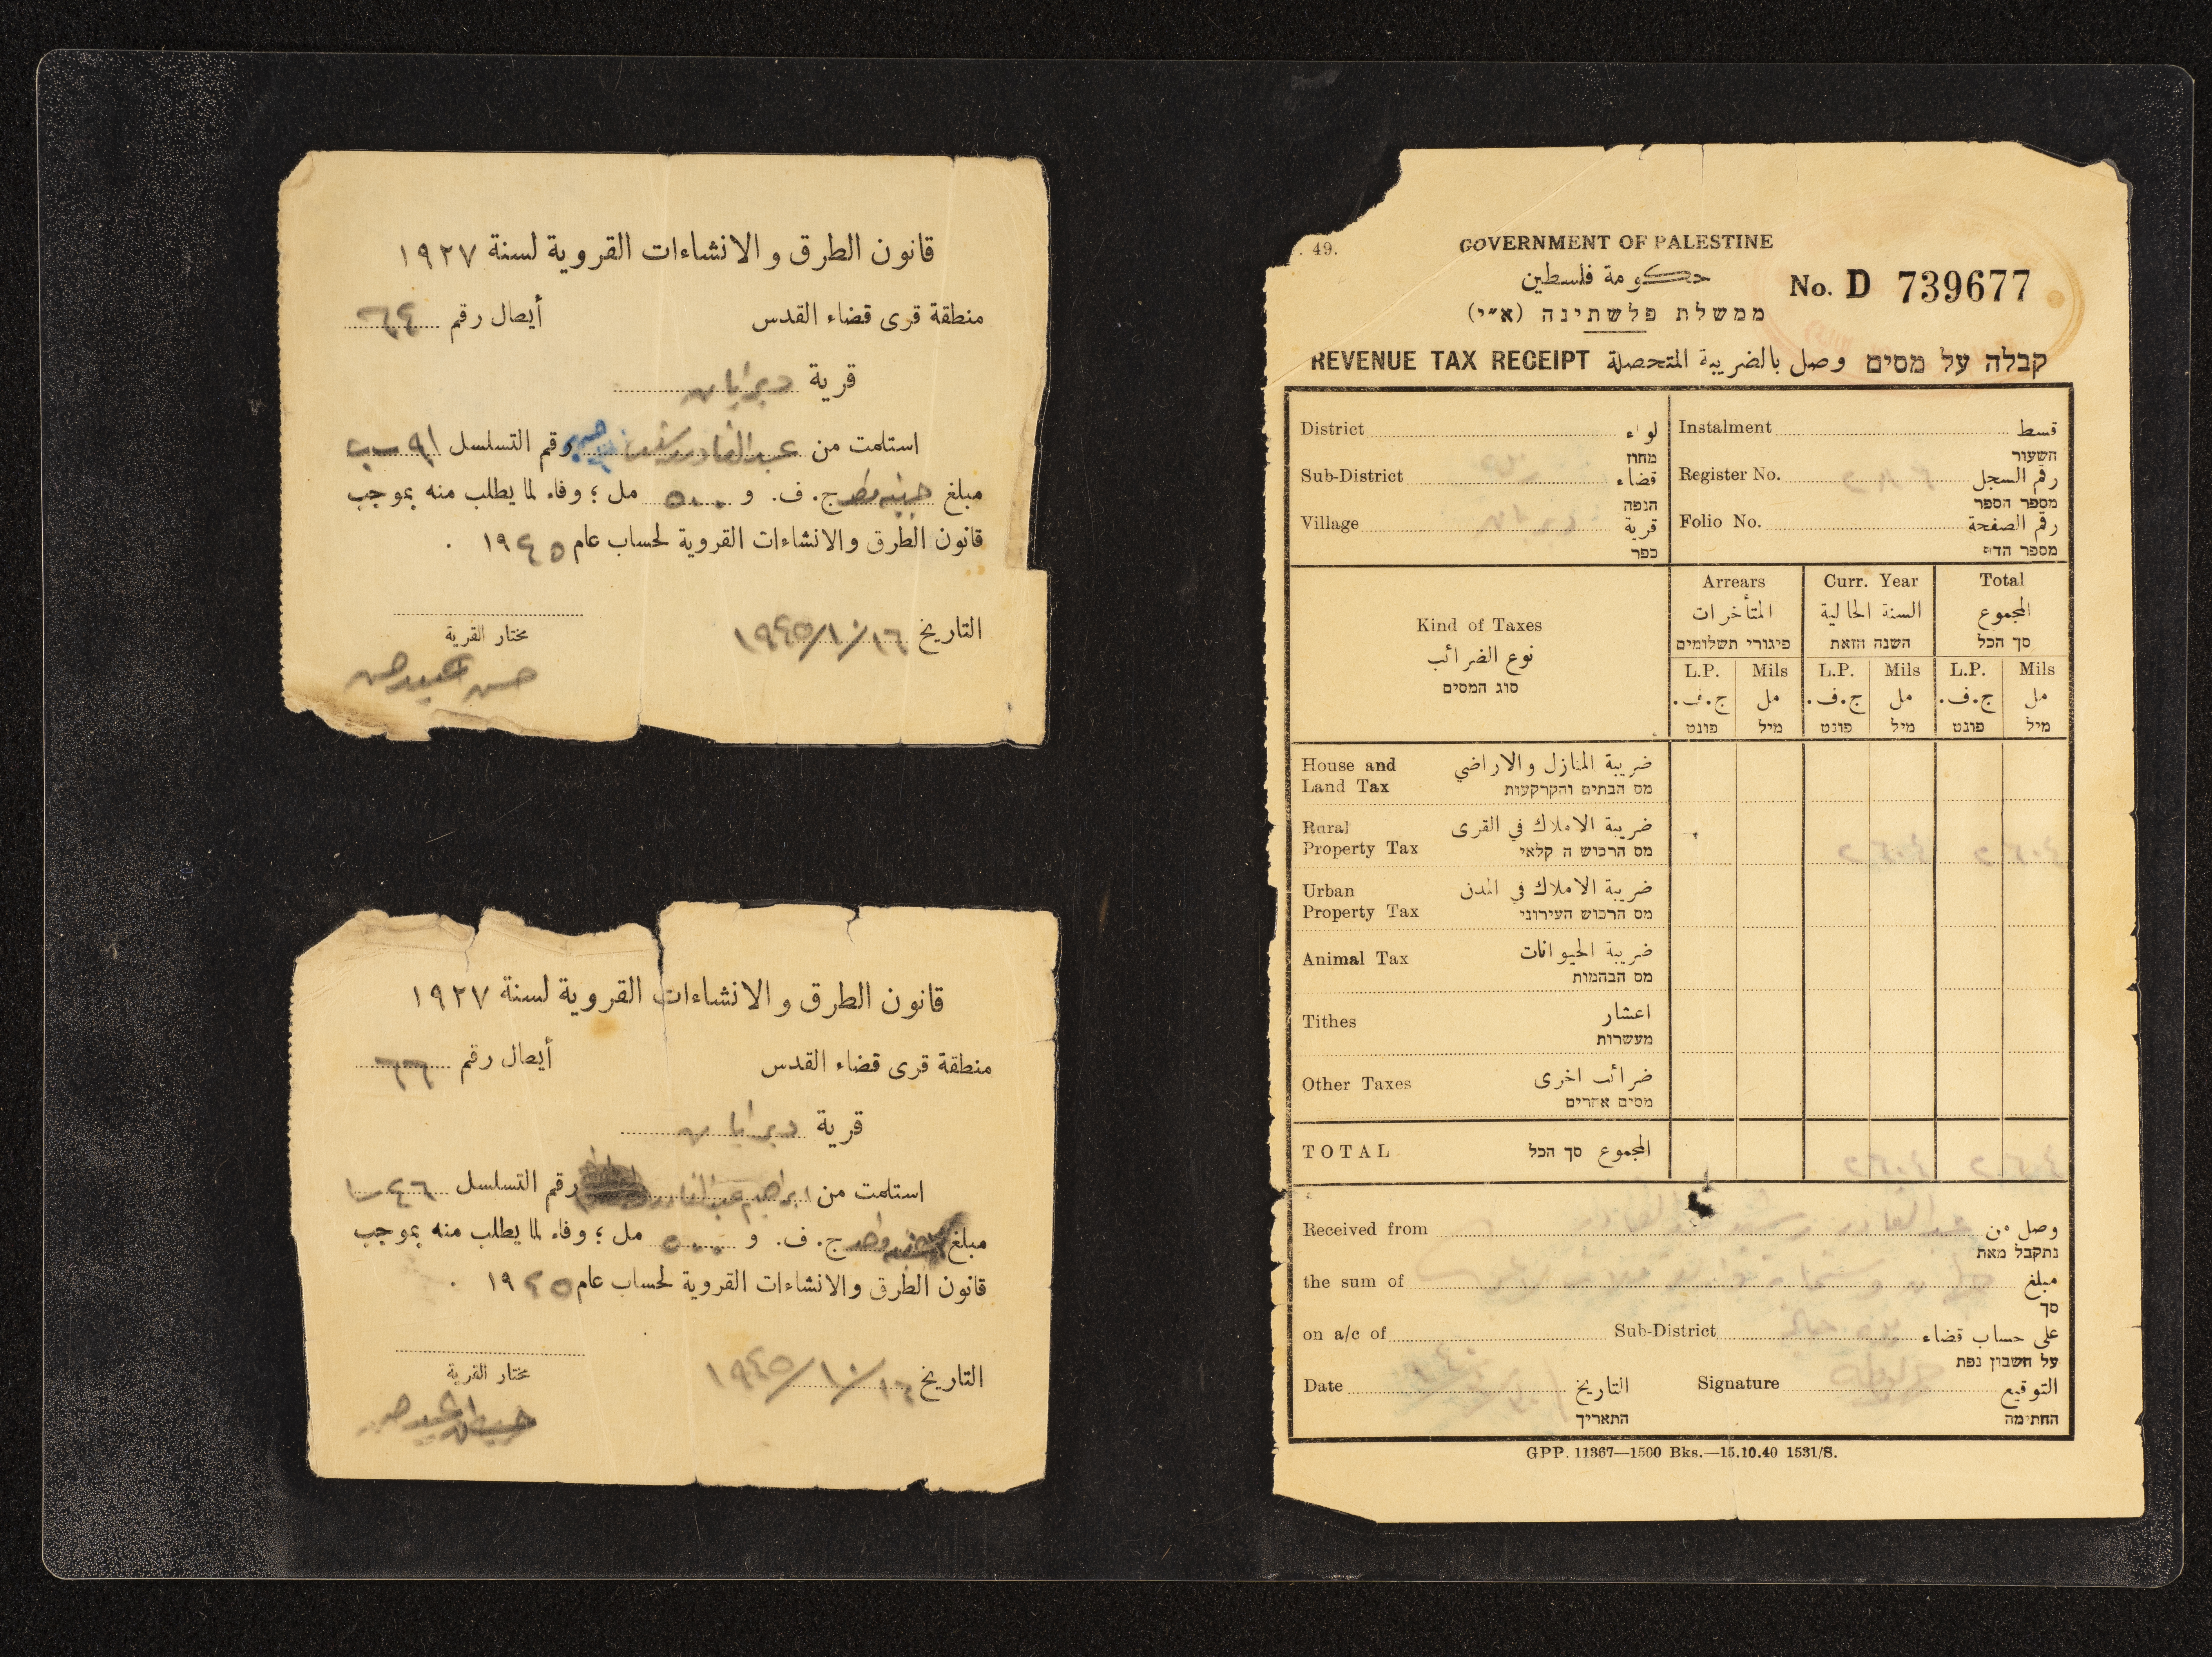 قانون الطرق والانشاءات القروية لسنة ١٩٢٧
منطقة قرى قضاء القدس أيصال رقم ٦٤
قرية ديرابان
استلمت من عبدالقادر رقم التسلسل ٩١
مبلغ ج. ف. و ٥٠٠ مل ؛ وفاء لما يطلب منه بموجب
قانون الطرق والانشاءات القروية لحساب عام ١٩٤٥ .
التاريخ ١٩٤٥/١٠/١٦
مختار القرية
حسن
قانون الطرق والانشاءات القروية لسنة ١٩٢٧
منطقة قرى قضاء القدس أيصال رقم ٦٦
قرية ديرابان
استلمت من ابراهيم عبدالقادر رقم التسلسل ٤٦
مبلغ واحد ج. ف. و ٥٠٠ مل ؛ وفاء لما يطلب منه بموجب
قانون الطرق والانشاءات القروية لحساب عام ١٩٤٥ .
التاريخ ١٩٤٥/١٠/١٦
مختار القرية
. 49.
GOVERNMENT OF PALESTINE
حكومة فلسطين
ממשלת פלשתינה (א״י)
No. D 739677
REVENUE TAX RECEIPT وصل بالضريبة المتحصلة קבלה על מסים
District لواء Instalment قسط
מחוז השעור
Sub-District قضاء Register No. رقم السجل
הנפה מספר הספר
Village ديرابان قرية Folio No. رقم الصفحة
כפר מספר הדף
Kind of Taxes Arrears Curr. Year Total
نوع الضرائب المتأخرات السنة الحالية المجموع
סוג המסים פיגורי תשלומים השנה הזאת סך הכל
L.P. Mils L.P. Mils L.P. Mils
ج.ف. مل ج.ف. مل ج.ف. مل
פונט מיל פונט מיל פונט מיל
House and Land Tax ضريبة المنازل والاراضي
מס הבתים והקרקעות
Rural Property Tax ضريبة الاملاك في القرى
מס הרכוש ה קלאי
Urban Property Tax ضريبة الاملاك في المدن
מס הרכוש העירוני
Animal Tax ضريبة الحيوانات
מס הבהמות
Tithes اعشار
מעשרות
Other Taxes ضرائب اخرى
מסים אחרים
TOTAL المجموع סך הכל
Received from عبدالقادر وصل من
נתקבל מאת
the sum of مبلغ
סך
on a/c of Sub-District على حساب قضاء
על חשבון נפת
Date التاريخ Signature التوقيع
התאריך החתימה
GPP. 11367—1500 Bks.—15.10.40 1531/S.